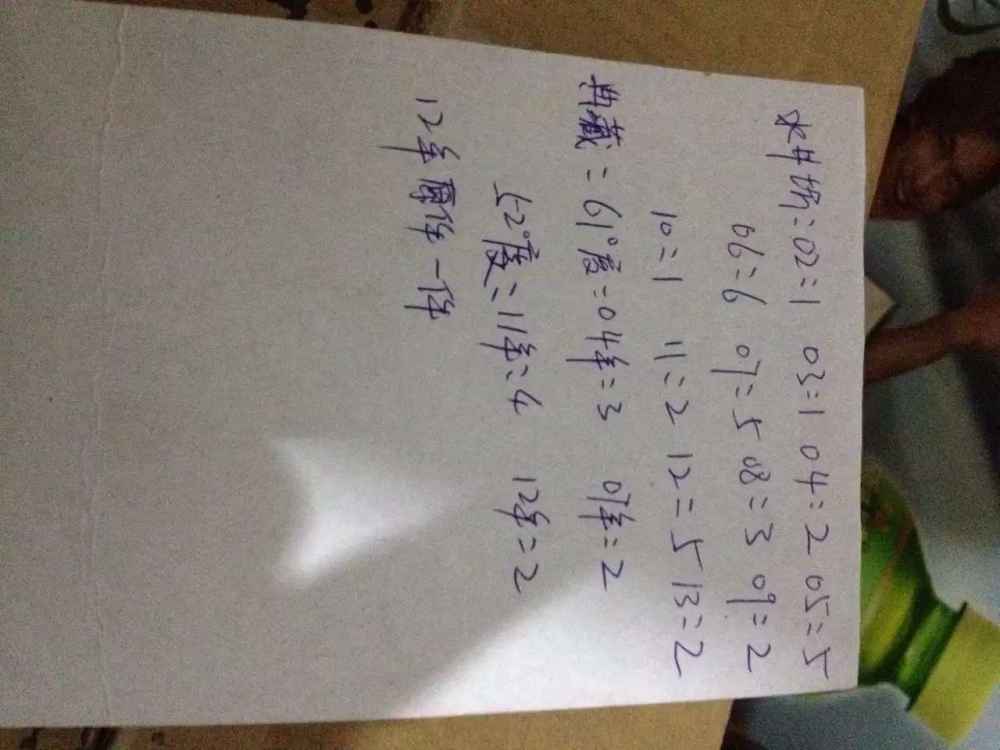 水井坊=02=1 03=1 04=2 05=5
06=6 07=5 08=3 09=2
10=1 11=2 12=5 13=2
典藏=61°度=04年=3 07年=2
52°度=11年=4 12年=2
12年 一件